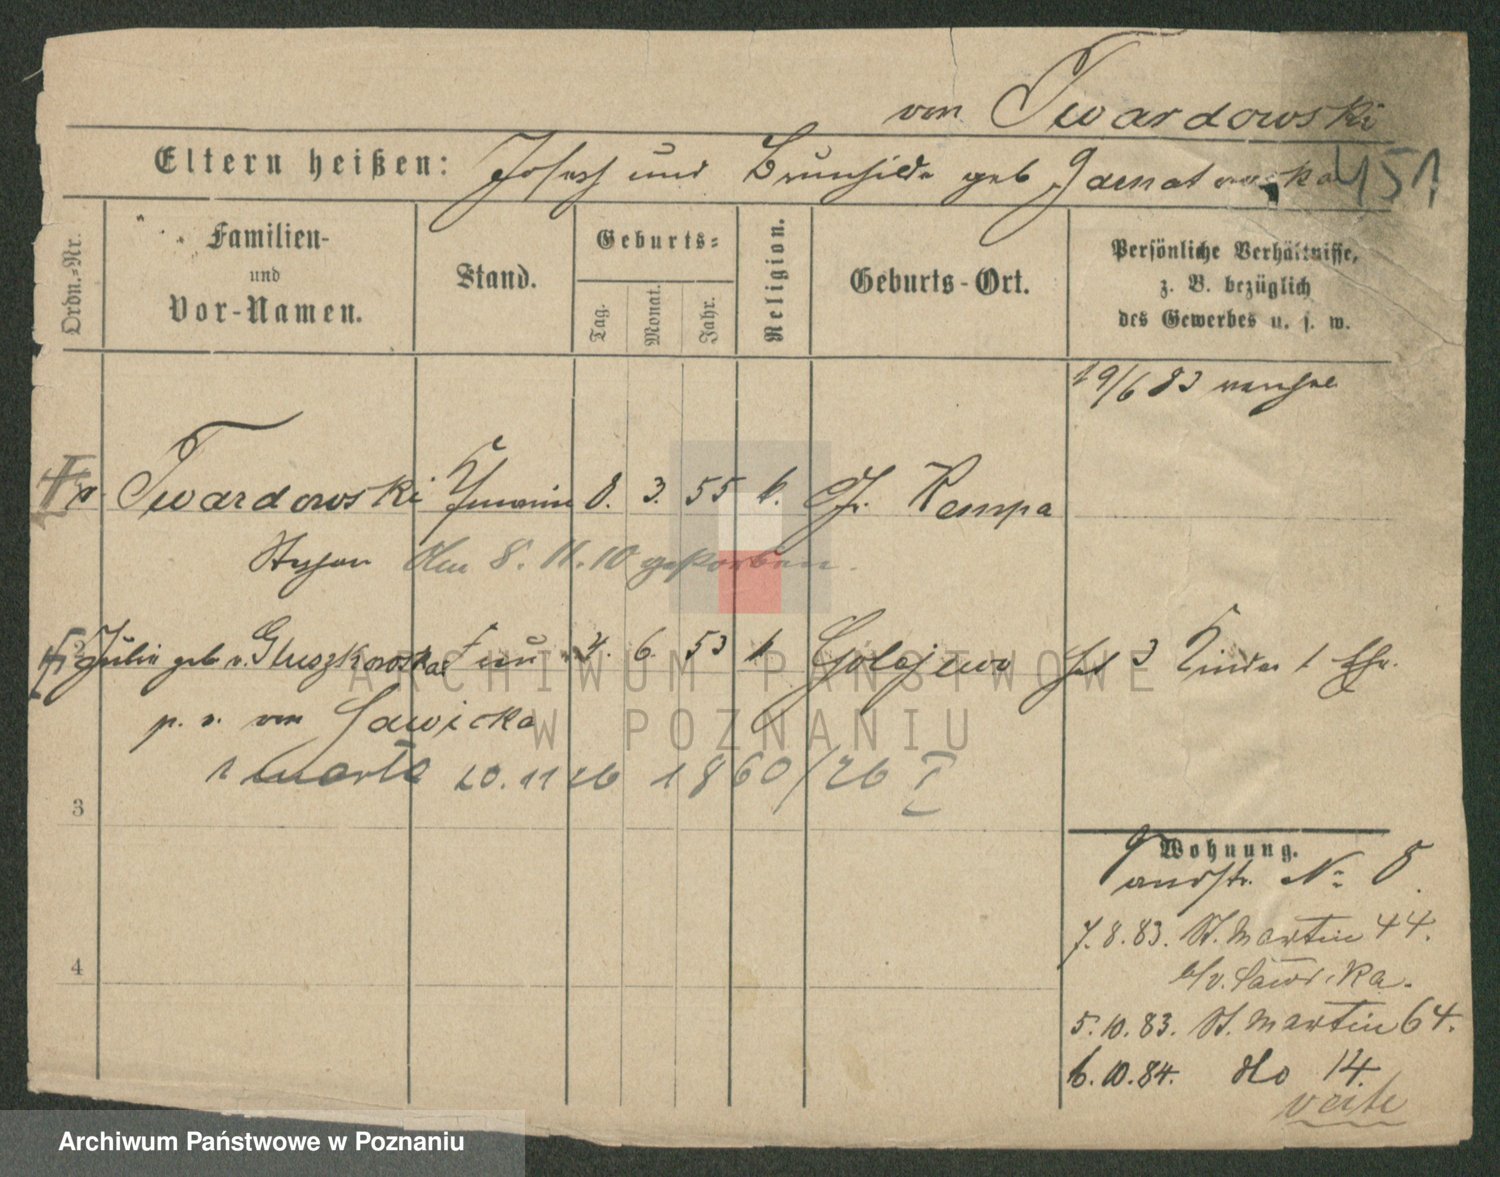 von Twardowski
Eltern heißen: Josef und Brunhilde geb
451
Ordn.-Nr.
Familien-
und
Vor-Namen.
Stand.
Geburts-
Tag.
Monat.
Jahr.
Religion.
Geburts-Ort.
Persönliche Verhältnisse,
z. B. bezüglich
des Gewerbes u. s. w.
19/6 83
v. Twardowski 8. 3. 55 k. Gr. Kempa
Stefan den 8. 11. 10 gestorben.
2 Julie geb v. Gluszkowska Frau 6. 53 k Golejewo hat 3 Kinder 1 Ehe.
p. v. von Sawicka
zmarła 20. 11 26 1860/26 I
3
4
Wohnung.
No 8.
7. 8. 83. St. Martin 44.
b/v. Sawicka.
5. 10. 83. St. Martin 64.
6. 10. 84. dto 14.
verte
ARCHIWUM PAŃSTWOWE
W POZNANIU
Archiwum Państwowe w Poznaniu